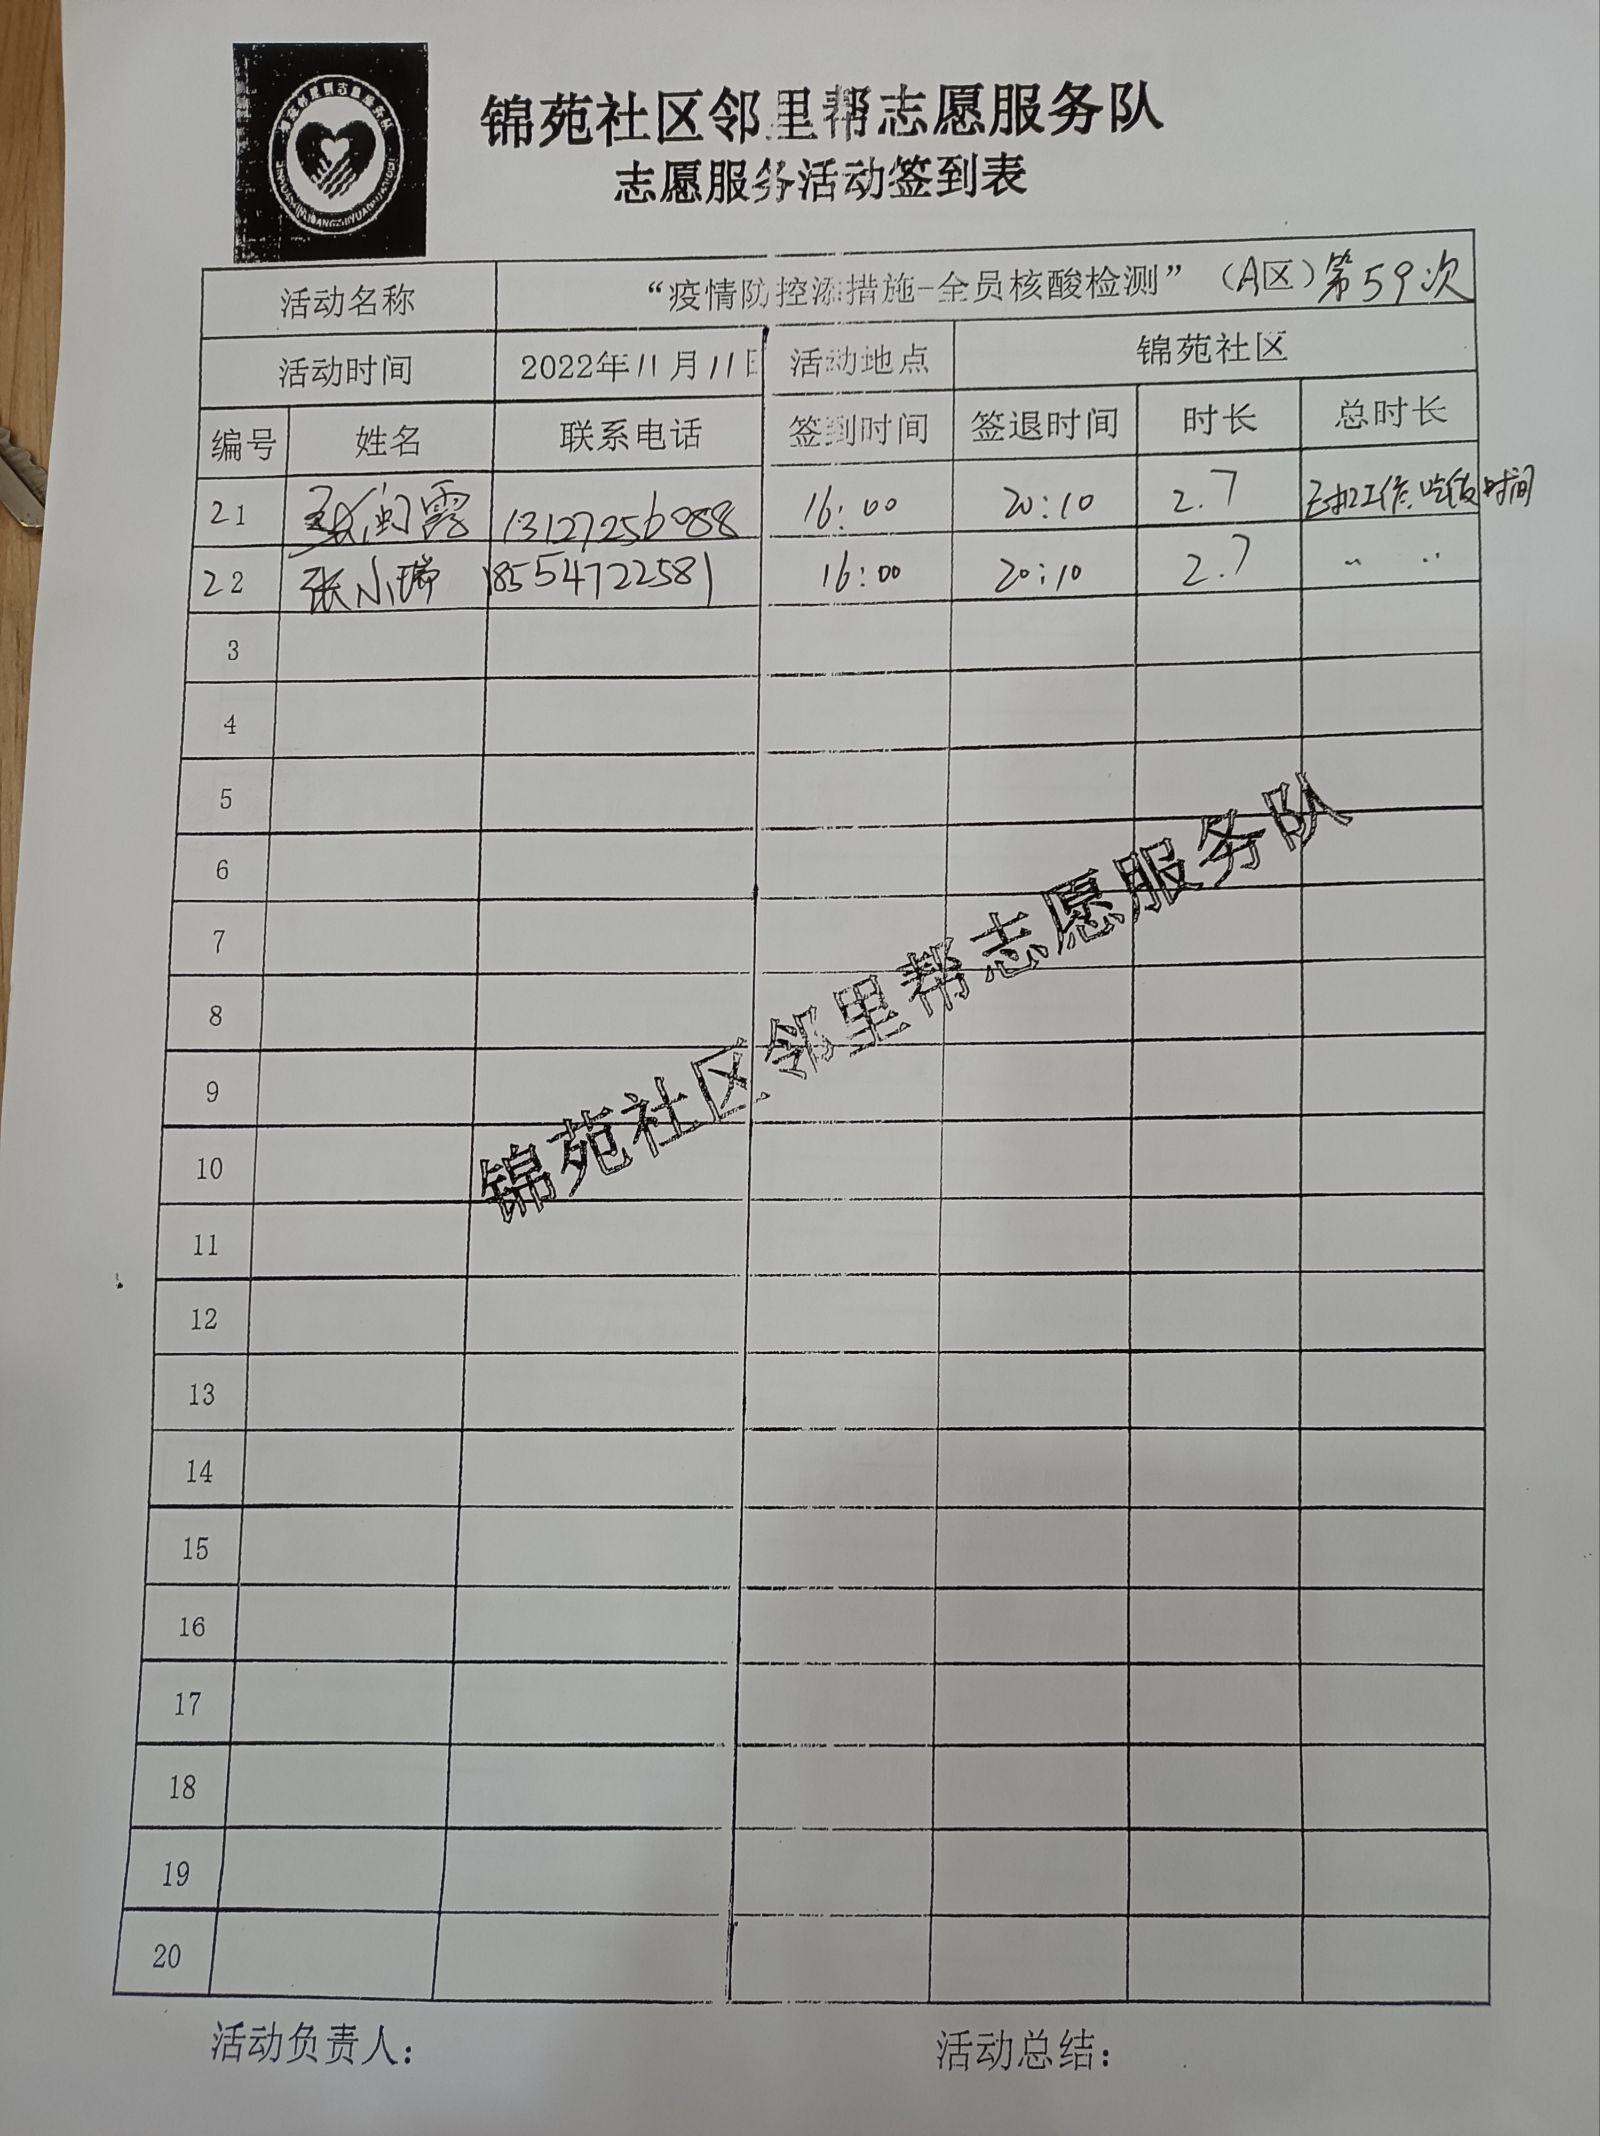 锦苑社区邻里帮志愿服务队
志愿服务活动签到表
活动名称 “疫情防控添措施-全员核酸检测” (A区)第59次
活动时间 2022年11月11日 活动地点 锦苑社区
编号 姓名 联系电话 签到时间 签退时间 时长 总时长
21 13127256088 16:00 20:10 2.7 已扣工作、吃饭时间
22 张小瑞 18554722581 16:00 20:10 2.7 〃 〃
3
4
5
6
7
8
9
10
11
12
13
14
15
16
17
18
19
20
锦苑社区邻里帮志愿服务队
活动负责人： 活动总结：